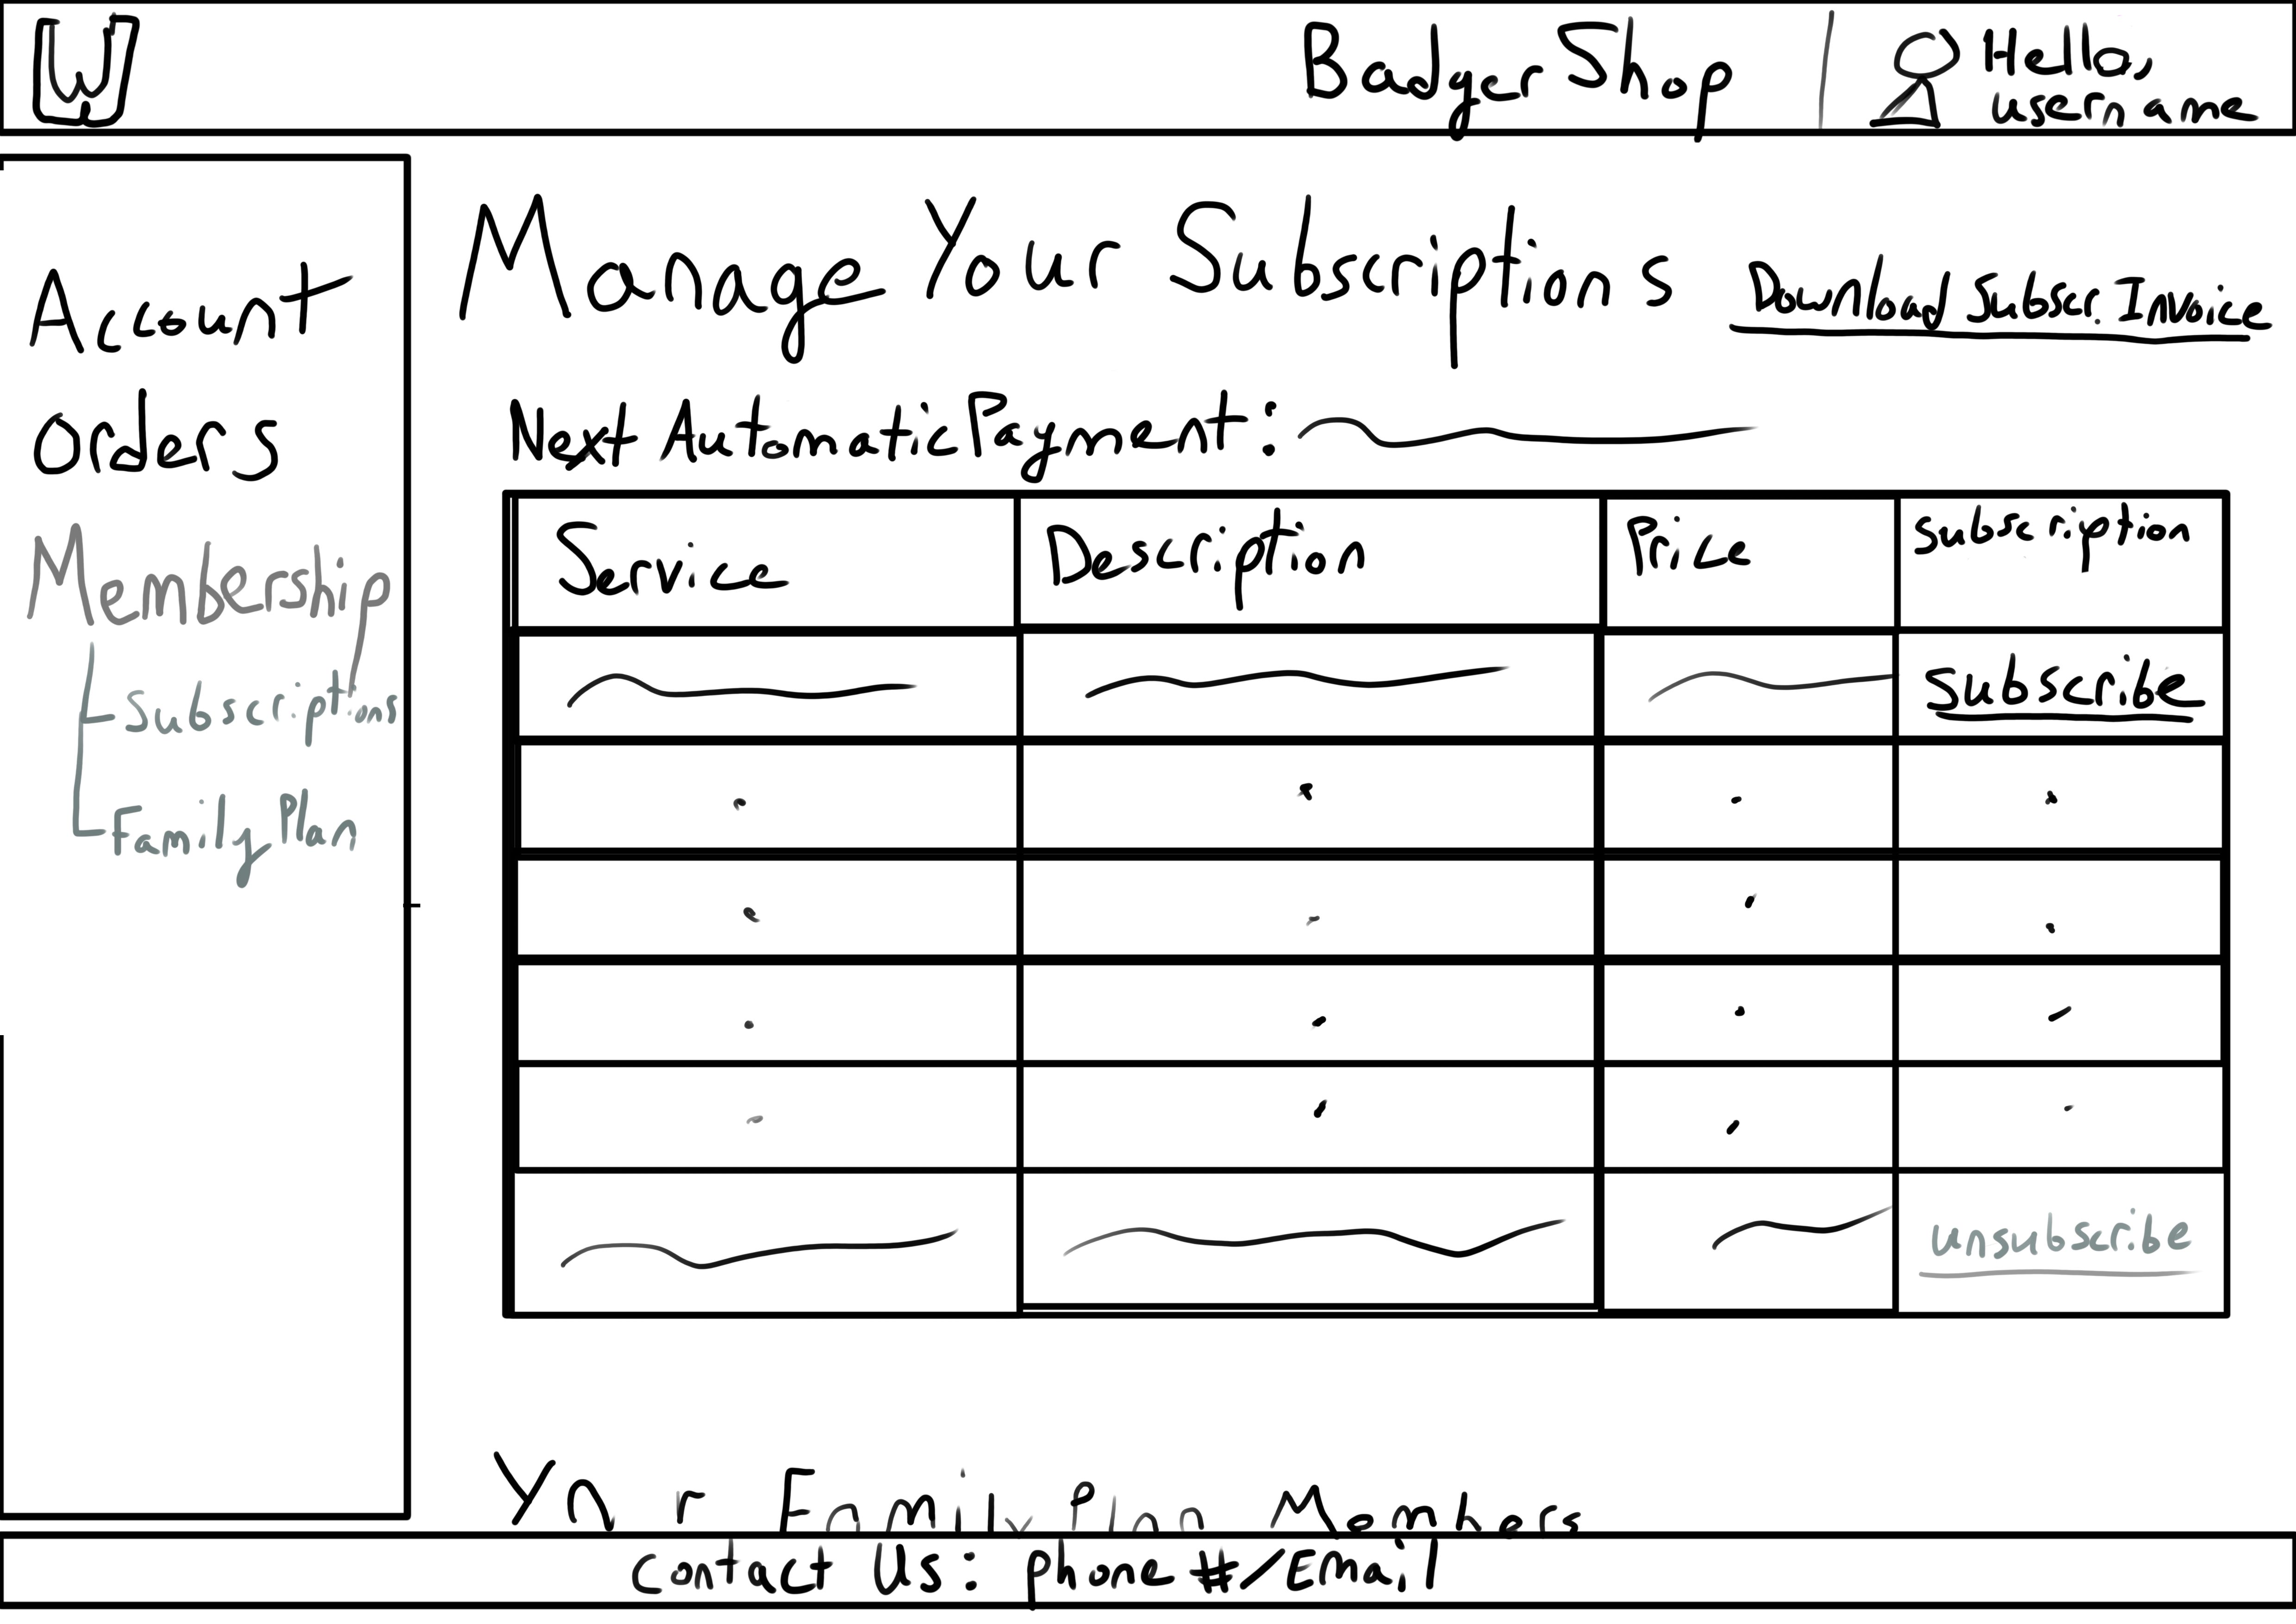 W
Badger Shop
Hello,
username
Account
Orders
Membership
Subscriptions
Family Plan
Manage Your Subscriptions
Download Subscr. Invoice
Next Automatic Payment:
Service Description Price Subscription
Subscribe
unsubscribe
Your Family Plan Members
Contact Us: phone #/Email